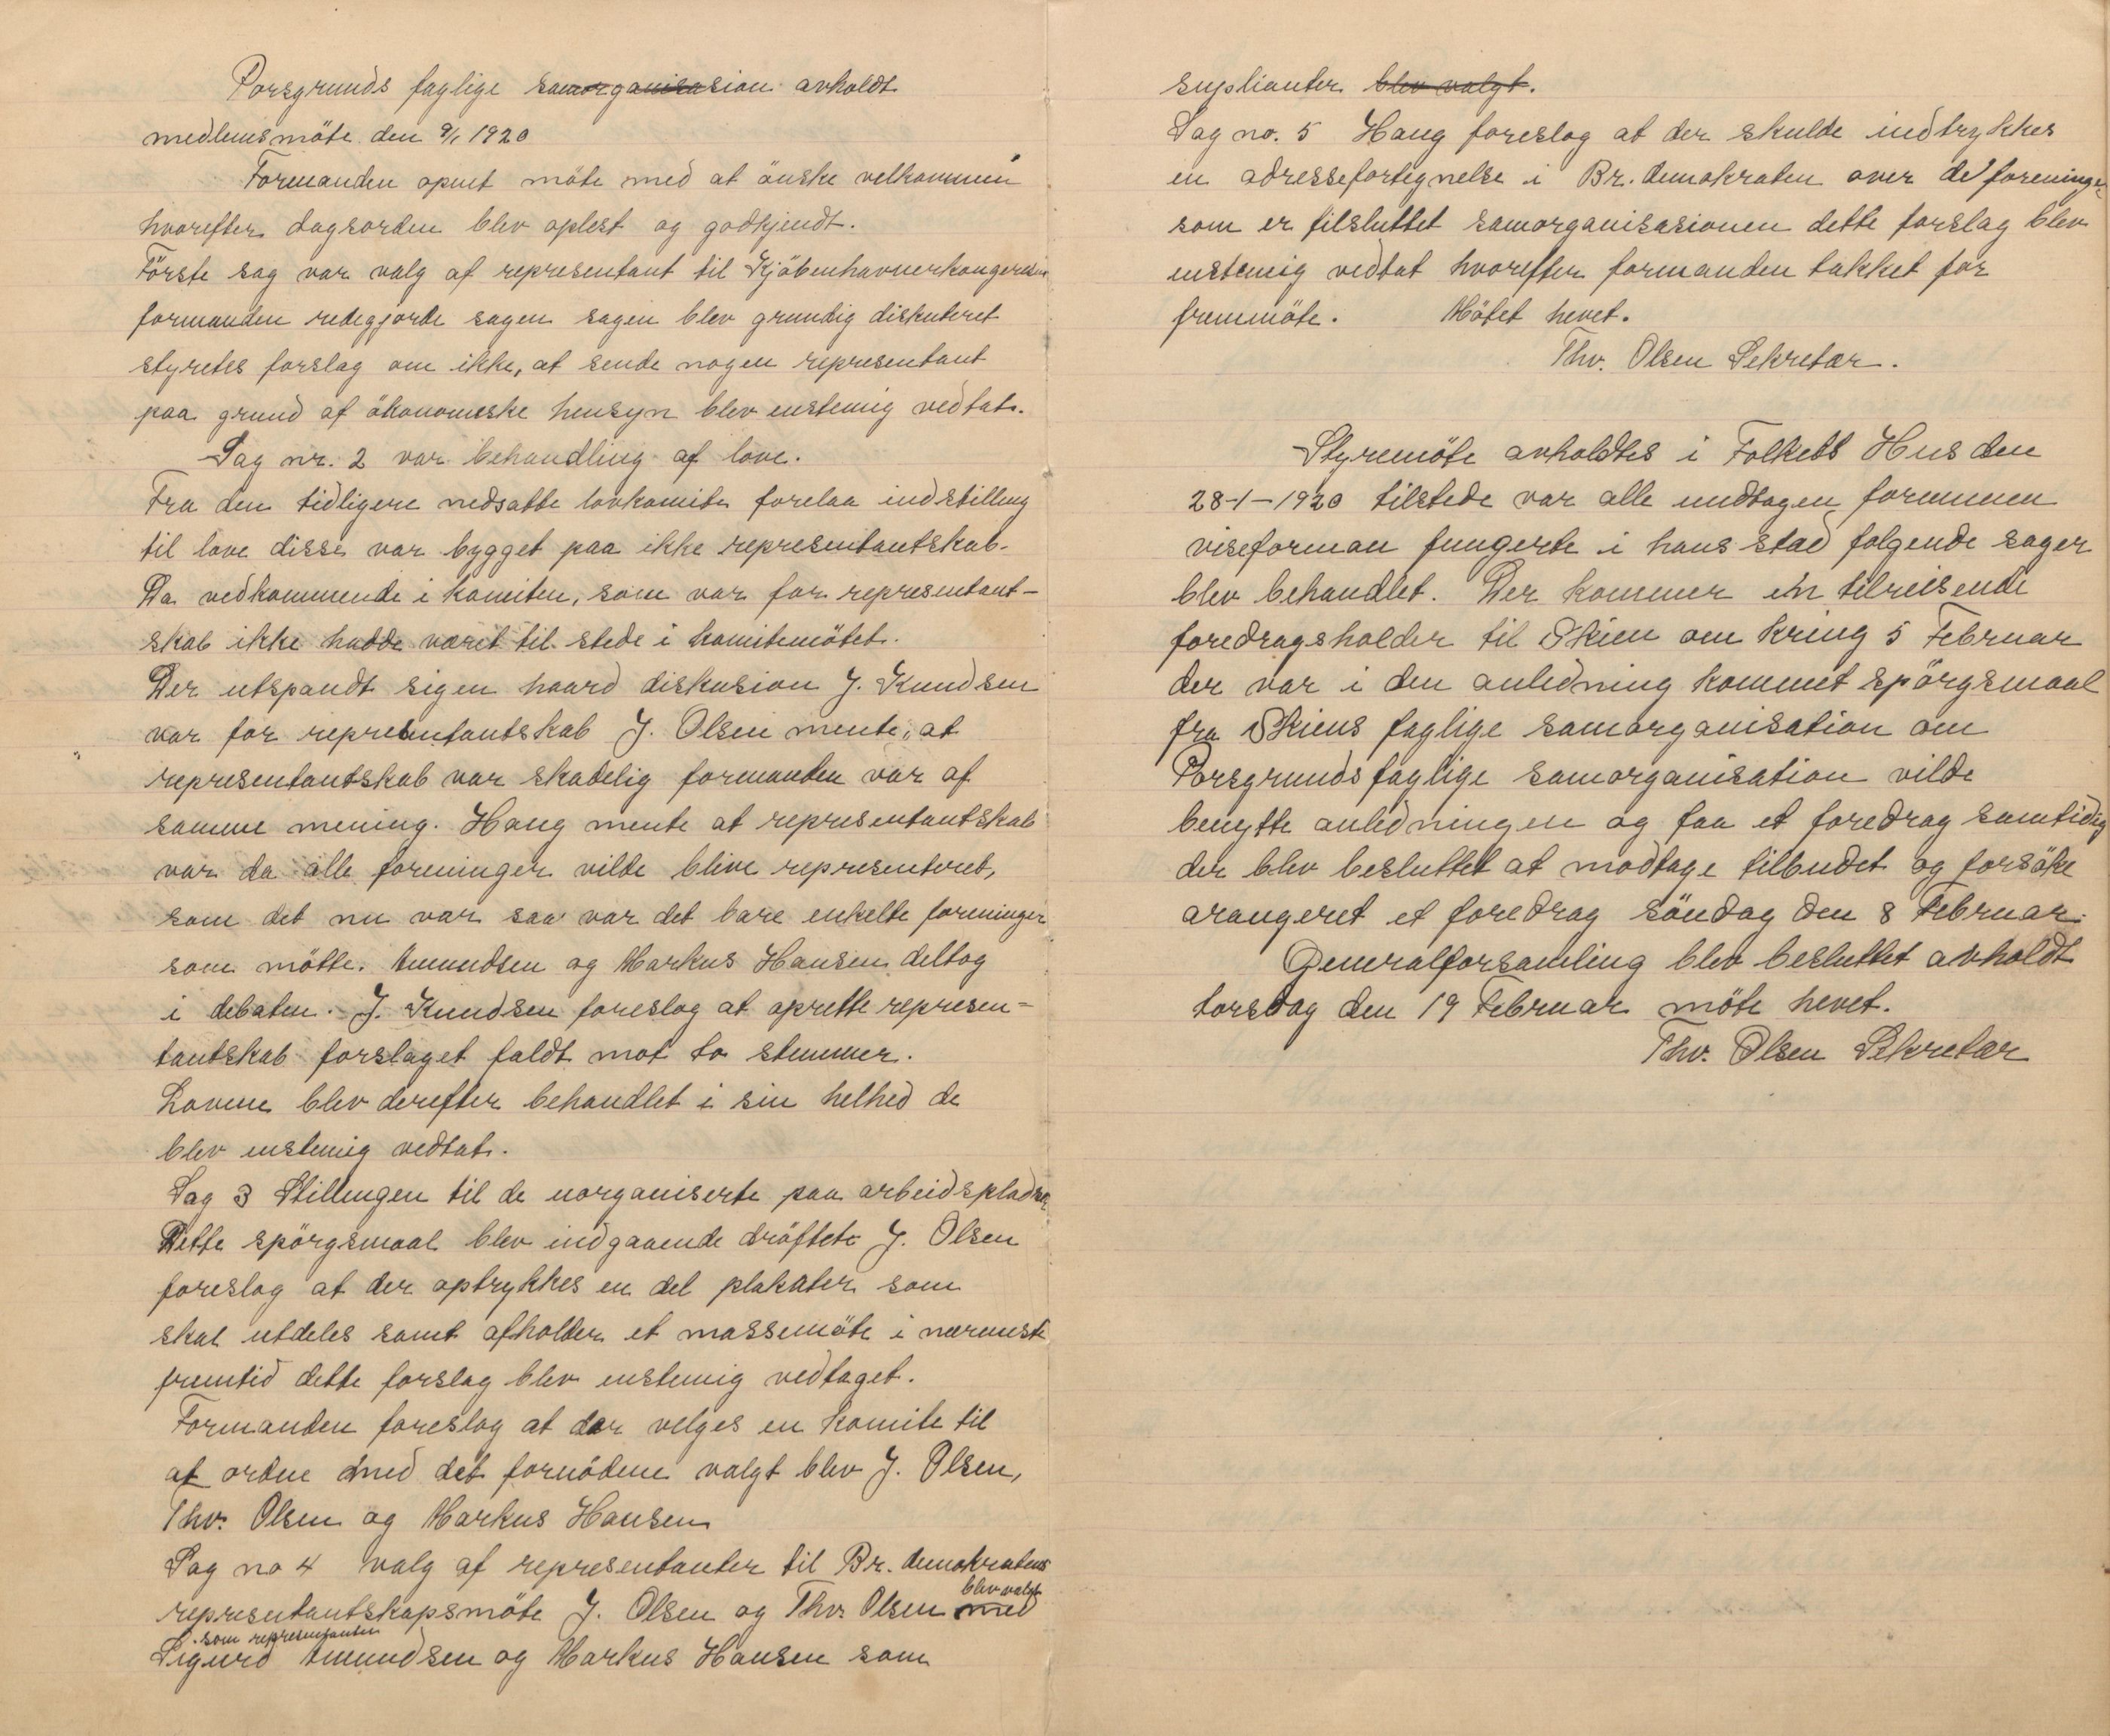 Porsgrunds faglige samorganisasion avholdt
medlemsmöte den 9/1 1920
Formanden apnet möte med at önske velkommen
hvorefter dagsorden blev oplest og godkjendt.
Förste sag var valg af representant til Kjöbenhavnerkongressen
formanden redegjorde sagen sagen blev grundig diskuteret
styretes forslag om ikke, at sende nogen representant
paa grund af ökonomeske hensyn blev enstemig vedtat.
Sag nr. 2 var behandling af love.
Fra den tidligere nedsatte lovkomite forelaa indstilling
til love disse var bygget paa ikke representantskab.
Da vedkommende i komiten, som var for representant-
skab ikke hadde været til stede i komitemötet.
Der utspandt sigen haard diskusion J. Knudsen
var for representantskab J. Olsen mente, at
representantskab var skadelig formanden var af
samme mening. Haug mente at representantskab
var da alle foreninger vilde blive representeret,
som det nu var saa var det bare enkelte foreninger
som mötte. Amundsen og Markus Hansen deltog
i debaten. J. Knudsen foreslog at oprette represen=
tantskab forslaget faldt mot to stemmer.
Lovene blev derefter behandlet i sin helhed de
blev enstemig vedtat.
Sag 3 Stillingen til de uorganiserte paa arbeidspladser
Dette spörgsmaal blev indgaaende dröftet J. Olsen
foreslog at der optrykkes en del plakater som
skal utdeles samt afholder et massemöte i nærmeste
fremtid dette forslag blev enstemig vedtaget.
Formanden foreslog at der velges en komite til
at ordne med det fornödene valgt blev J. Olsen,
Thv. Olsen og Markus Hansen
Sag no 4 valg af representanter til Br. demokratens
representantskapsmöte J. Olsen og Thv. Olsen med blev valgt
som representanter
Sigurd Amundsen og Markus Hansen som
suplianter blev valgt.
Sag no. 5 Haug foreslog at der skulde indtrykkes
en adressefortegnelse i Br. demokraten over de foreninger
som er tilsluttet samorganisasionen dette forslag blev
enstemig vedtat hvorefter formanden takket for
fremmöte. Mötet hevet.
Thv. Olsen Sekretær.
Styremöte avholdtes i Folkets Hus den
28-1-1920 tilstede var alle undtagen formmen
viseforman fungerte i hans sted folgende sager
blev behandlet. Der kommer en tilreisende
foredragsholder til Skien om kring 5 Februar
der var i den anledning kommet spörgsmaal
fra Skiens faglige samorganisation om
Porsgrunds faglige samorganisation vilde
benytte anledningen og faa et foredrag samtidig
der blev besluttet at modtage tilbudet og forsöke
arangeret et foredrag söndag den 8 Februar.
Generalforsamling blev besluttet avholdt
torsdag den 19 Februar möte hevet.
Thv. Olsen Sekretær